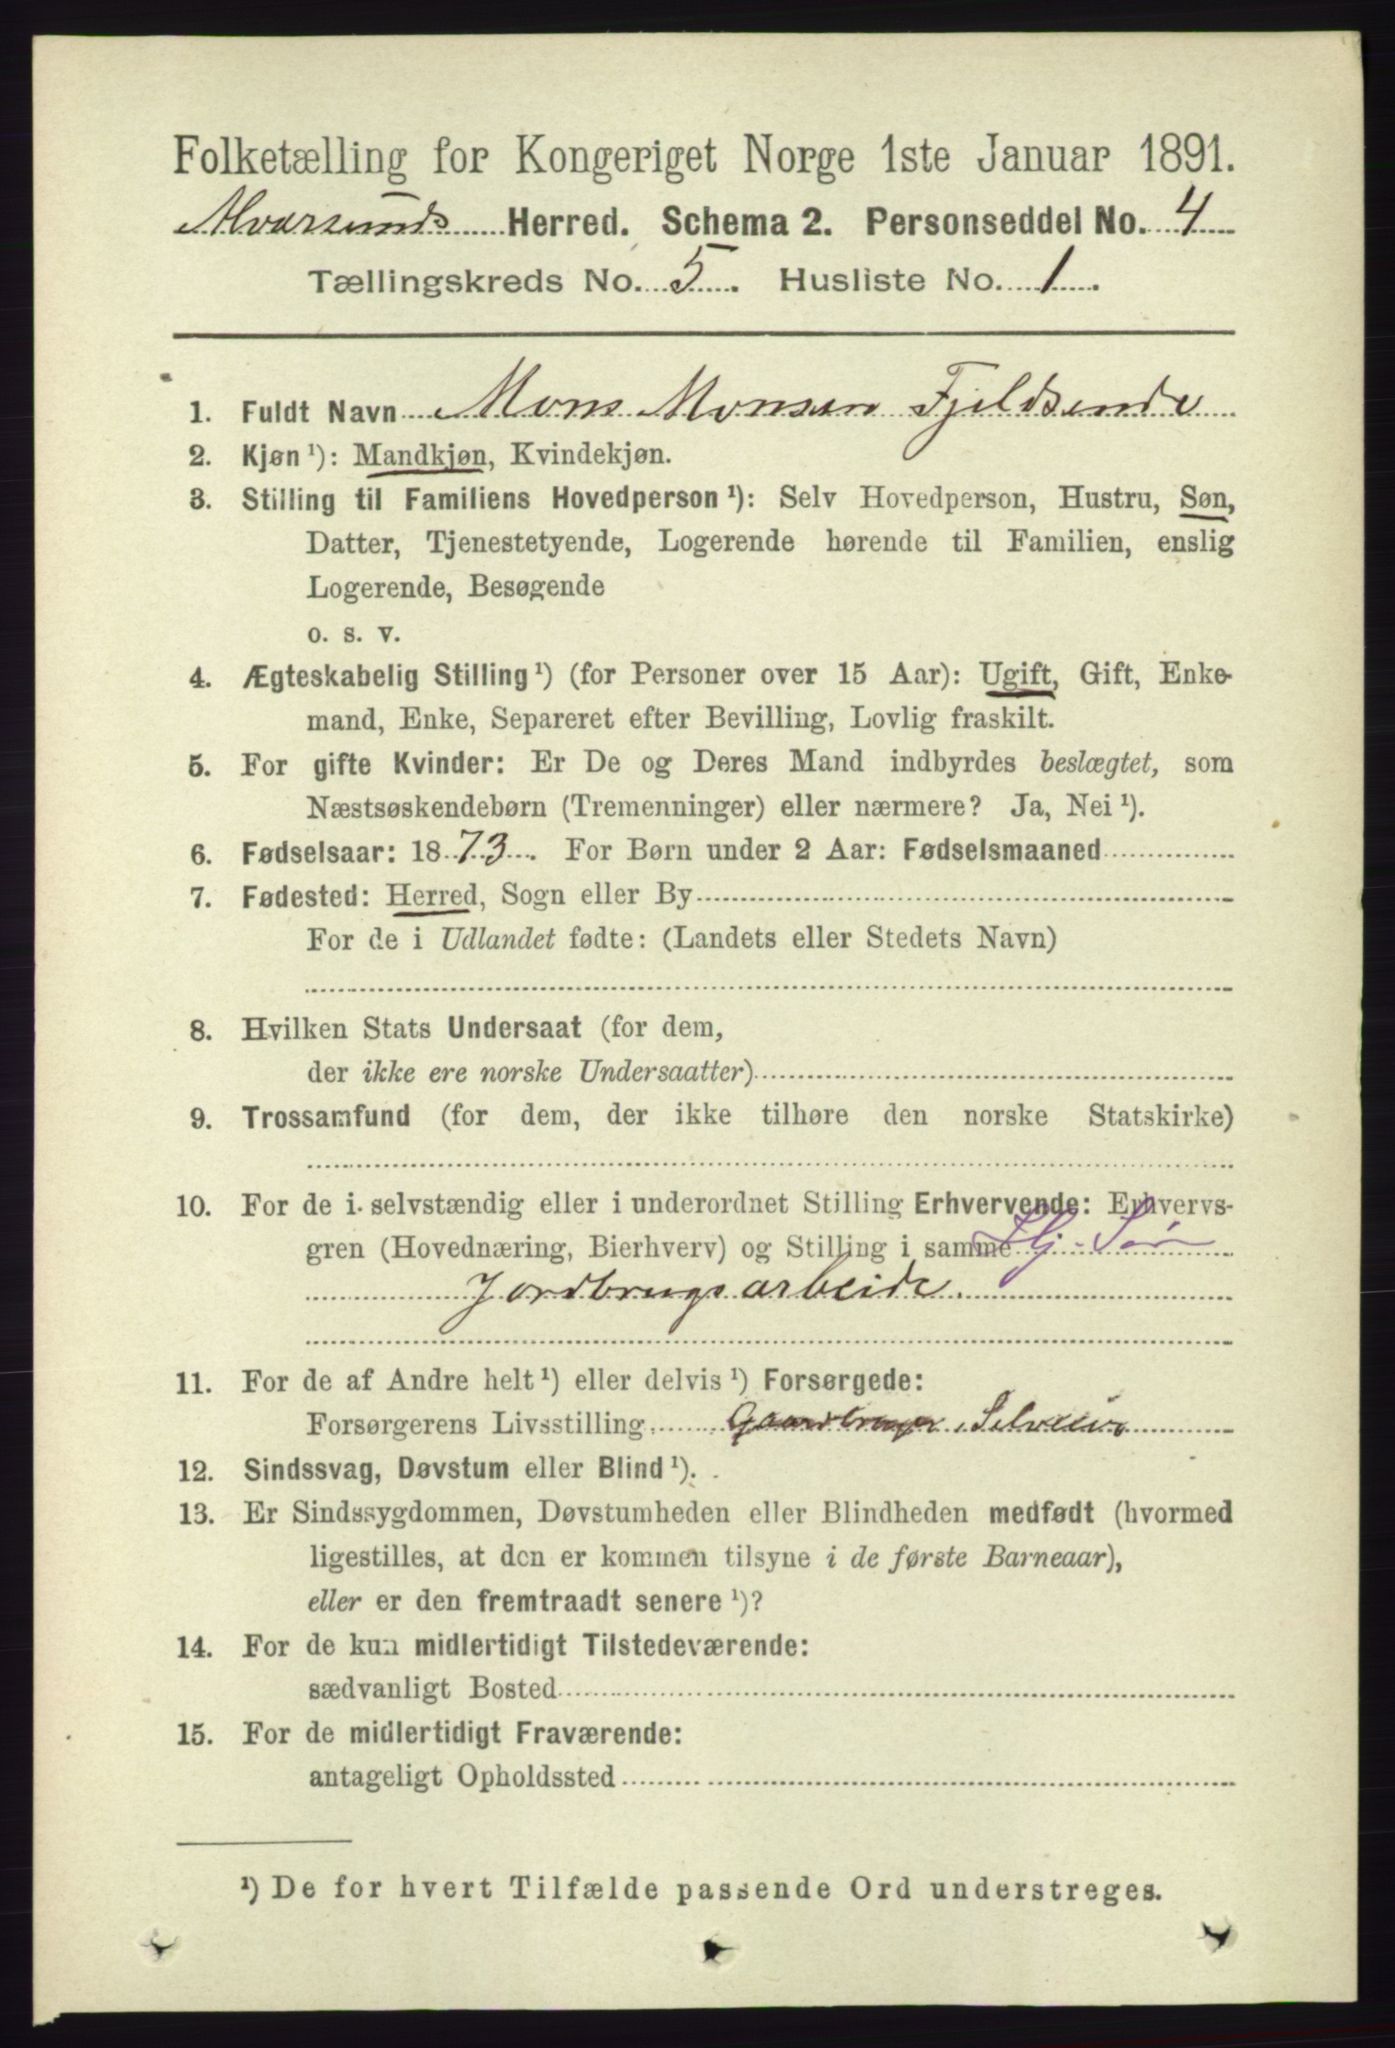 Folketælling for Kongeriget Norge 1ste Januar 1891.
Alversunds Herred. Schema 2. Personseddel No. 4
Tællingskreds No. 5. Husliste No. 1.
1. Fuldt Navn Mons Monsen Fjeldsende
2. Kjøn ¹): Mandkjøn, Kvindekjøn.
3. Stilling til Familiens Hovedperson ¹): Selv Hovedperson, Hustru, Søn,
Datter, Tjenestetyende, Logerende hørende til Familien, enslig
Logerende, Besøgende
o. s. v.
4. Ægteskabelig Stilling ¹) (for Personer over 15 Aar): Ugift, Gift, Enke-
mand, Enke, Separeret efter Bevilling, Lovlig fraskilt.
5. For gifte Kvinder: Er De og Deres Mand indbyrdes beslægtet, som
Næstsøskendebørn (Tremenninger) eller nærmere? Ja, Nei ¹).
6. Fødselsaar: 1873. For Børn under 2 Aar: Fødselsmaaned
7. Fødested: Herred, Sogn eller By
For de i Udlandet fødte: (Landets eller Stedets Navn)
8. Hvilken Stats Undersaat (for dem,
der ikke ere norske Undersaatter)
9. Trossamfund (for dem, der ikke tilhøre den norske Statskirke)
10. For de i selvstændig eller i underordnet Stilling Erhvervende: Erhvervs-
gren (Hovednæring, Bierhverv) og Stilling i samme Hj. Søn
Jordbrugsarbeide.
11. For de af Andre helt ¹) eller delvis ¹) Forsørgede:
Forsørgerens Livsstilling Gaardbruger, Selveier
12. Sindssvag, Døvstum eller Blind ¹).
13. Er Sindssygdommen, Døvstumheden eller Blindheden medfødt (hvormed
ligestilles, at den er kommen tilsyne i de første Barneaar),
eller er den fremtraadt senere ¹)?
14. For de kun midlertidigt Tilstedeværende:
sædvanligt Bosted
15. For de midlertidigt Fraværende:
antageligt Opholdssted
¹) De for hvert Tilfælde passende Ord understreges.